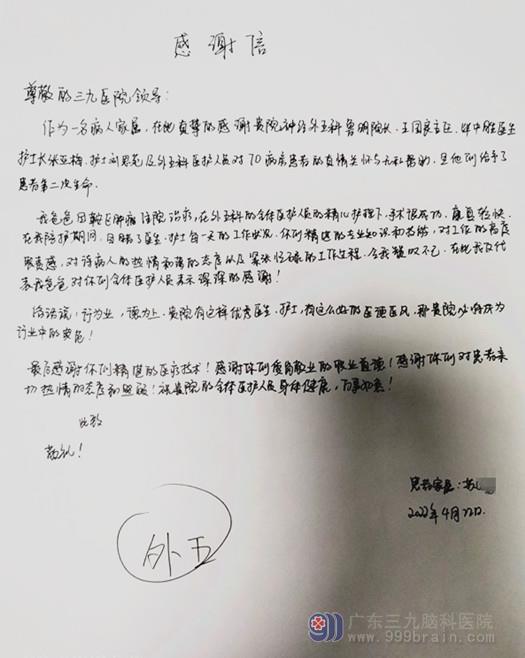 感谢信
尊敬的三九医院领导：
作为一名病人家属，在此真挚的感谢贵院神经外五科鲁明院长、王国良主任、医生
护士长张亚梅、护士刘思苑及外五科医护人员对70病房患者的真情关怀与无私帮助，是他们给予了
患者第二次生命。
我爸爸因鞍区肿瘤住院治疗，在外五科的全体医护人员的精心护理下，手术很成功，康复较快。
在我陪护期间，目睹了医生、护士每一天的工作状况，你们精湛的专业知识和技能，对工作的高度
责任感，对待病人的热情和蔼的态度以及紧张忙碌的工作过程，令我赞叹不已，在此我仅代
表我爸爸对你们全体医护人员表示深深的感谢！
俗话说：行为业，德为上，贵院有这样优秀医生、护士，有这么好的医德医风，那贵院必将成为
行业中的
最后感谢你们精湛的医疗技术！感谢你们爱岗敬业的职业道德！感谢你们对患者亲
切热情的态度和照顾！祝贵院的全体医护人员身体健康，万事如意！
此致
敬礼！
患者家属：
2022年4月22日
外五
广东三九脑科医院
www.999brain.com